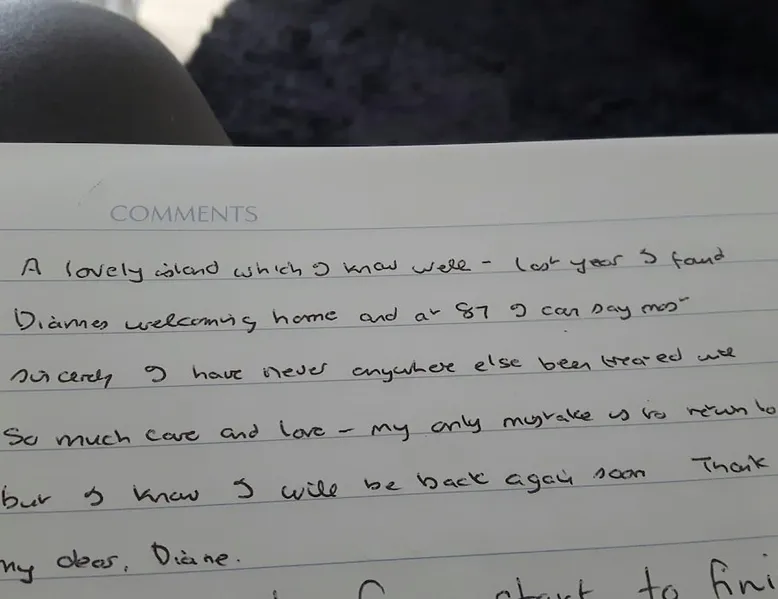 COMMENTS
A lovely island which I know well - last year I found
Diannes welcoming home and at 87 I can say most
sincerely I have never anywhere else been treated
So much care and love - my only mistake is to return to
but I know I will be back again soon Thank
my dear, Diane.
start to fini